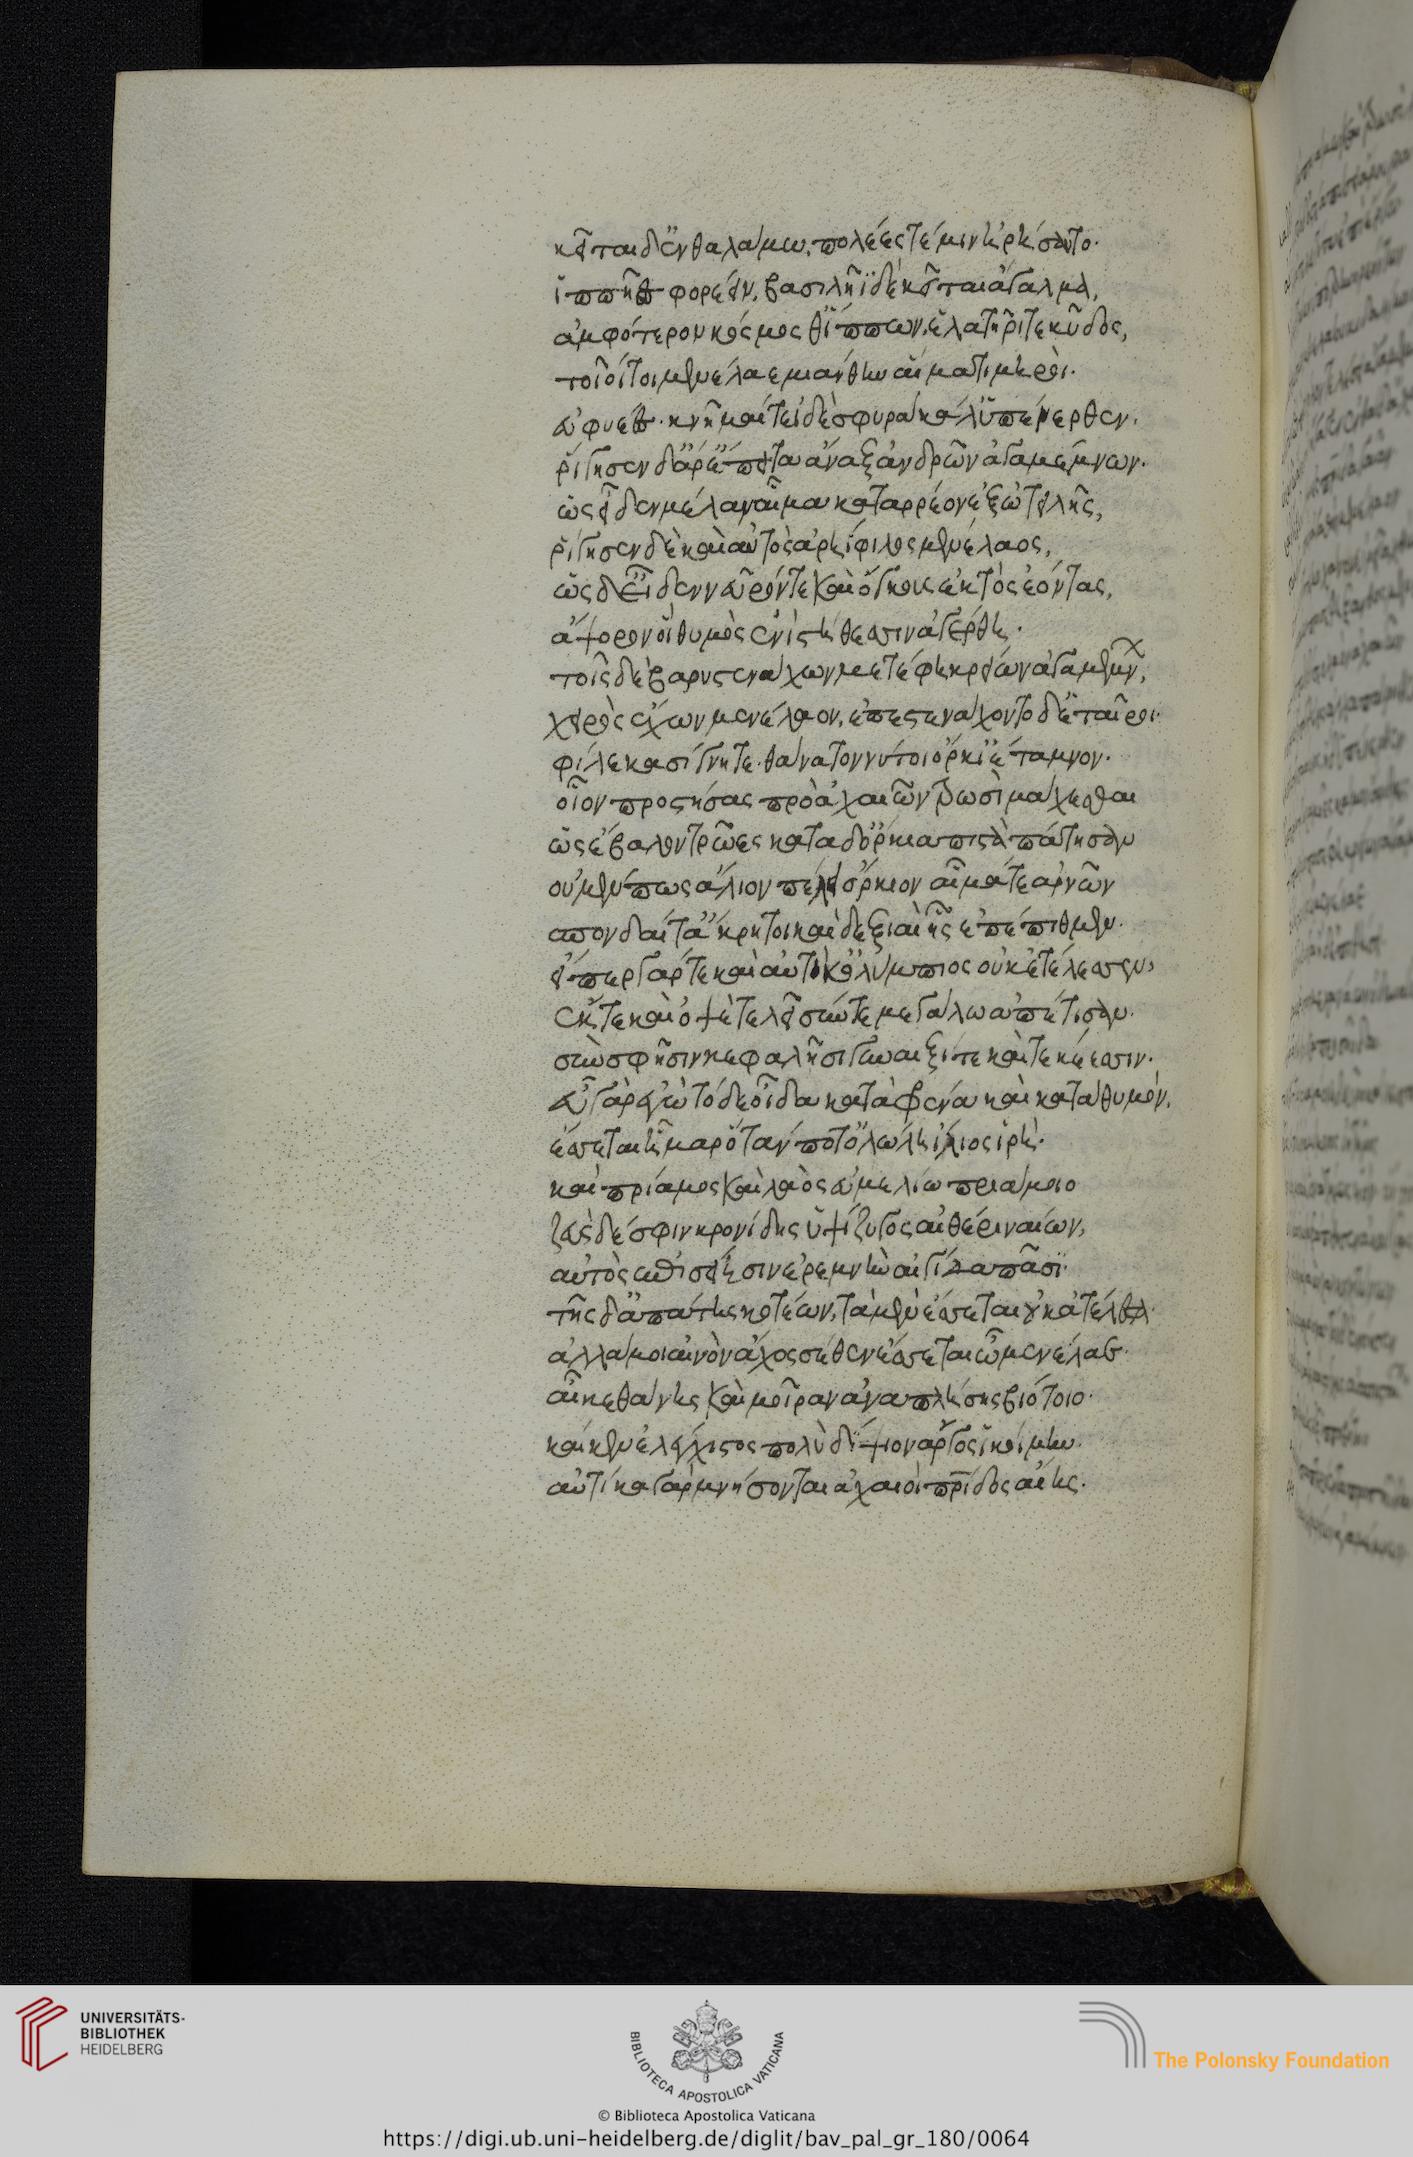 κεῖται δ' ἐν θαλάμω, πολέες τέ μιν ἠρήσαντο.
ἱππῆες φορέειν, βασιλῆϊ δὲ κεῖται ἄγαλμα,
ἀμφότερον κόσμος θ' ἵππων, ἐλατῆρί τε κῦδος,
τοῖοί τοι μενέλαε μιάνθην αἵματι μηροὶ.
εὐφυέες. κνῆμαί τε ἰδὲ σφυρὰ κάλ' ὑπένερθεν.
ῥίγησεν δ' ἄρ' ἔπειτα ἄναξ ἀνδρῶν ἀγαμέμνων.
ὡς εἶδεν μέλαν αἷμα καταρρέον ἐξ ὠτειλῆς,
ῥίγησεν δὲ καὶ αὐτὸς ἀρηίφιλος μενέλαος,
ὡς δὲ ἴδεν νεῦρόν τε καὶ ὄγκους ἐκτὸς ἐόντας,
ἄψορρόν οἱ θυμὸς ἐνὶ στήθεσσιν ἀγέρθη.
τοῖς δὲ βαρυστενάχων μετέφη κρείων ἀγαμέμνων,
χειρὸς ἔχων μενέλαον, ἐπεστενάχοντο δ' ἑταῖροι.
φίλε κασίγνητε. θάνατόν νύ τοι ὅρκι' ἔταμνον.
οἷον προστήσας πρὸ ἀχαιῶν τρωσὶ μάχεσθαι
ὥς ἔβαλον τρῶες κατὰ δ' ὅρκια πιστὰ πάτησαν
οὐ μέν πως ἅλιον πέλει ὅρκιον αἷμά τε ἀρνῶν
σπονδαί τ' ἄκρητοι καὶ δεξιαὶ ἧς ἐπέπιθμεν.
εἴπερ γάρ τε καὶ αὐτίκ' ὀλύμπιος οὐκ ἐτέλεσσεν,
ἔκ τε καὶ ὀψὲ τελεῖ σύν τε μεγάλω ἀπέτισαν.
σὺν σφῆσιν κεφαλῆσι γυναιξί τε καὶ τεκέεσσιν.
εὖ γὰρ ἐγὼ τόδε οἶδα κατὰ φρένα καὶ κατὰ θυμόν,
ἔσσεται ἦμαρ ὅταν ποτ' ὀλώλη ἴλιος ἱρὴ.
καὶ πρίαμος καὶ λαὸς ἐυμελίω πριάμοιο
ζεὺς δέ σφιν κρονίδης ὑψίζυγος αἰθέρι ναίων,
αὐτὸς ἐπισσείησιν ἐρεμνὴν αἰγίδα πᾶσι.
τῆς δ' ἀπάτης κοτέων, τὰ μὲν ἔσσεται οὐκ ἀτέλεστα.
ἀλλά μοι αἰνὸν ἄχος σέθεν ἔσσεται ὦ μενέλαε.
αἴ κε θάνης καὶ μοῖραν ἀναπλήσης βιότοιο.
καί κεν ἐλέγχιστος πολυδίψιον ἄργος ἱκοίμην.
αὐτίκα γὰρ μνήσονται ἀχαιοὶ πατρίδος αἴης.
UNIVERSITÄTS-
BIBLIOTHEK
HEIDELBERG
BIBLIOTECA APOSTOLICA VATICANA
The Polonsky Foundation
© Biblioteca Apostolica Vaticana
https://digi.ub.uni-heidelberg.de/diglit/bav_pal_gr_180/0064